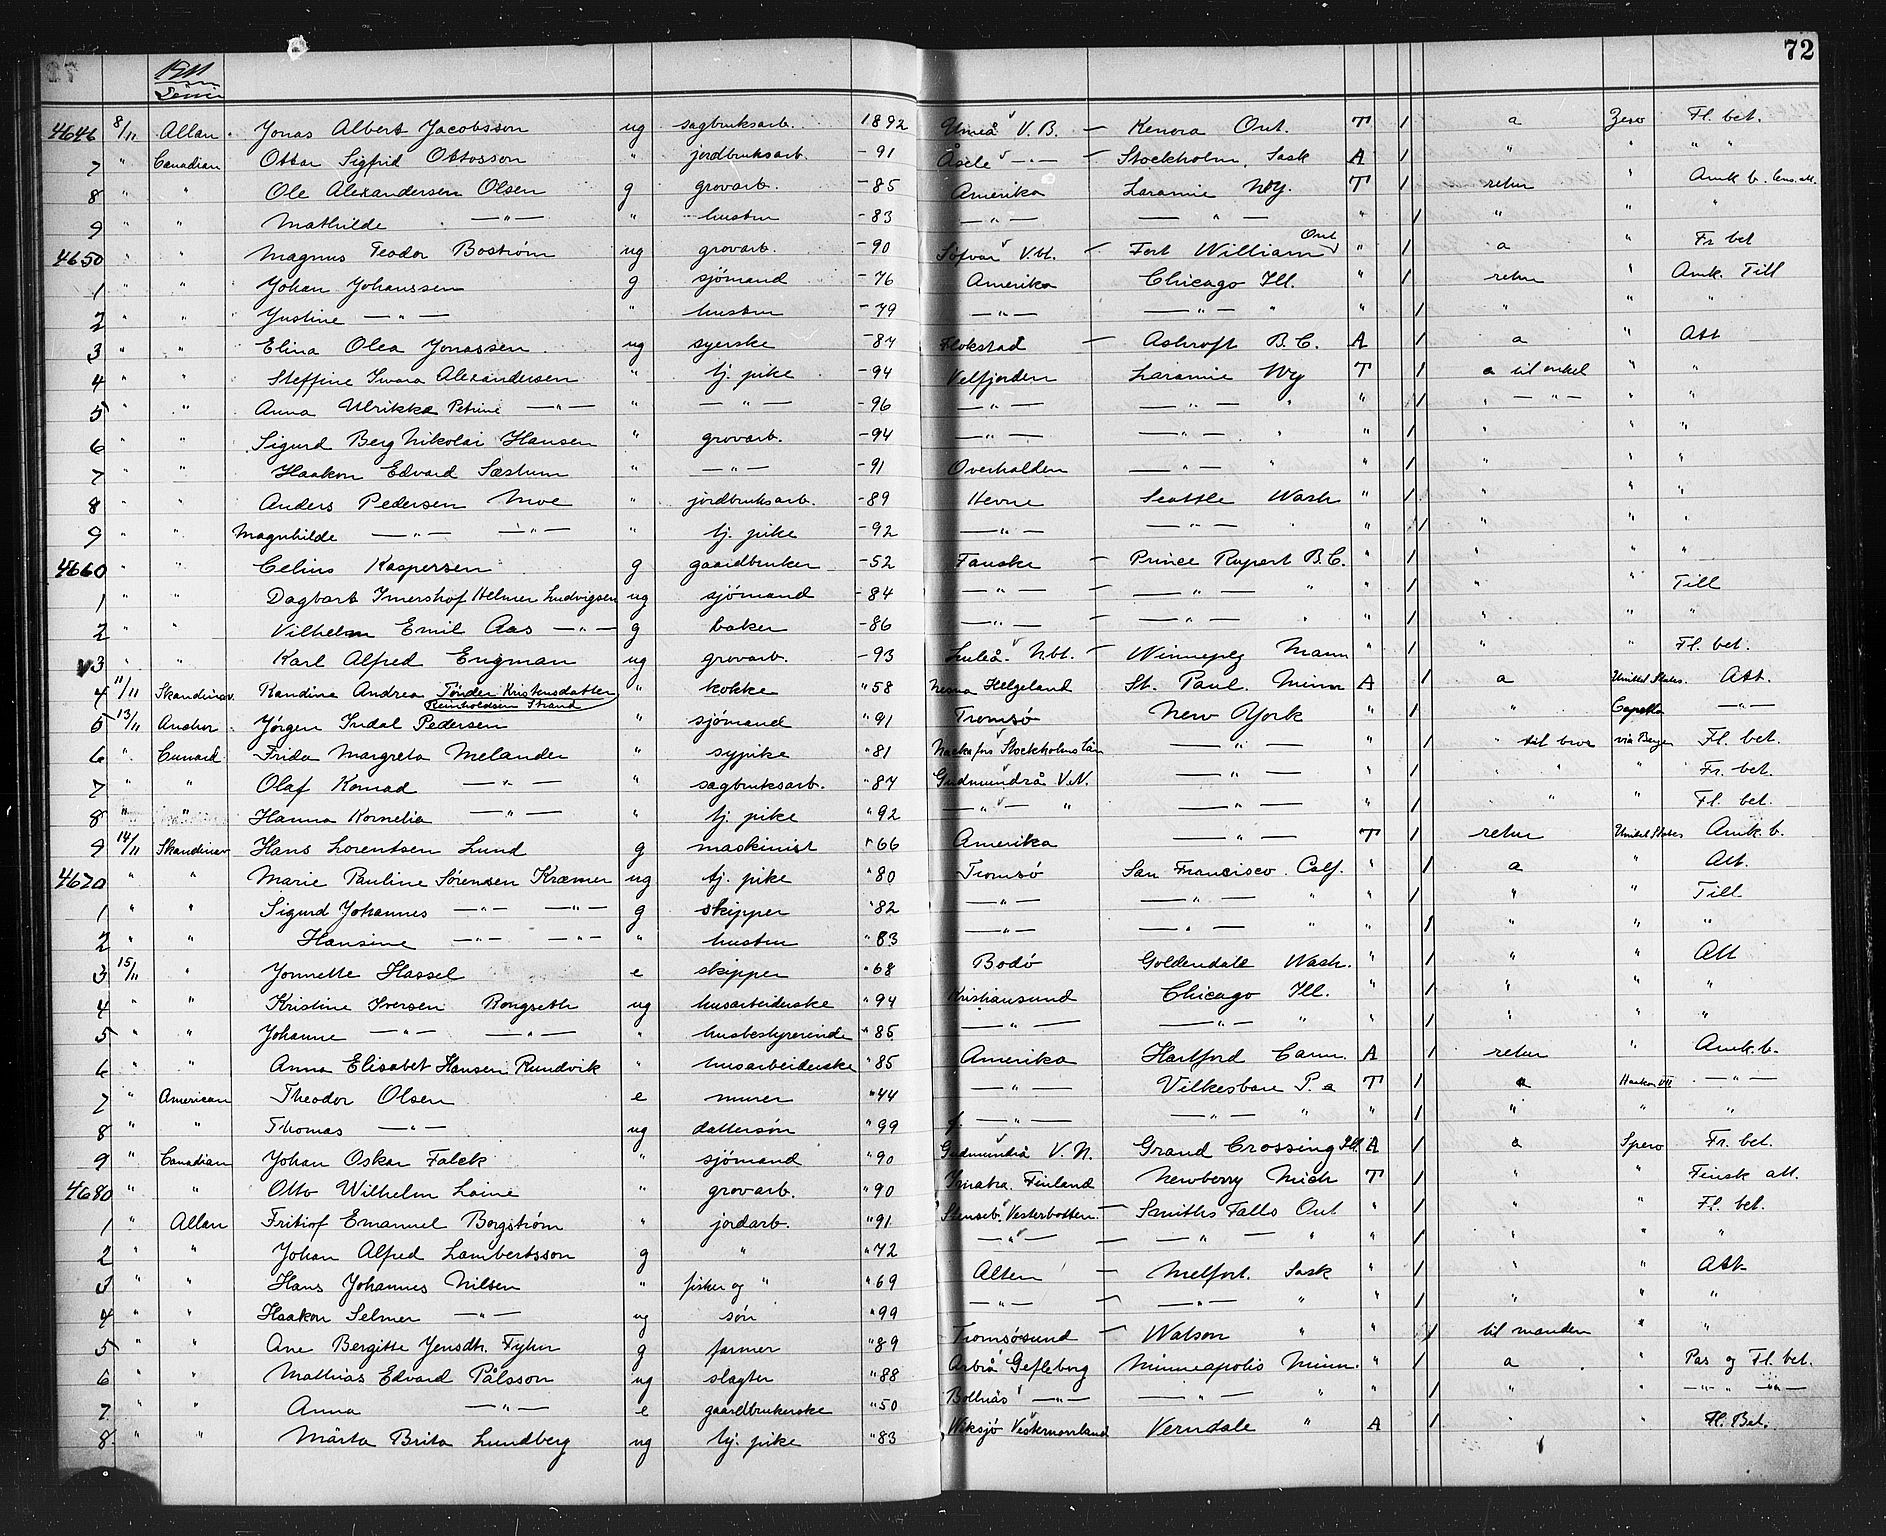 72
1911
4646 8/11 Allan. Jonas Albert Jacobsson ug sagbruksarb. 1892 Umeå V.B. — Kenora Ont. T 1 a Zero Fl. bet.
7 " Canadian Ottar Sigfrid Ottosson " jordbruksarb. -91 Åsele —"— — Stockholm, Sask A 1 " " " "
8 " " Ole Alexandersen Olsen g grovarb. -85 Amerika Laramie Wy. T 1 retur " Amk b.
9 " " Mathilde —"— " hustru -83 —"— —"— " 1 " " "
4650 " " Magnus Teodor Boström ug grovarb. -90 V.bt. — Fort William Ont " 1 a " Fr bet
1 " " Johan Johanssen g sjömand -76 Amerika Chicago Ill. " 1 retur " Amk. Till
2 " " Justine —"— " hustru -79 —"— —"— " " 1 " " "
3 " " Elina Olea Jonassen. ug syerske -84 Flakstad — Ashroft B.C. A 1 a " Att
4 " " Steffine Ivara Alexandersen " tj. pike -94 Velfjorden Laramie Wy T 1 a til onkel " "
5 " " Anna Ulrikka Petrine —"— " —"— -96 —"— —"— " " 1 " —"— " "
6 " " Sigurd Berg Nikolai Hansen " grovarb. -94 —"— —"— " " 1 " " "
7 " " Haakon Edvard Sæstum " —"— -91 Overhalden —"— " " 1 " " "
8 " " Anders Pedersen Moe " jordbruksarb. -89 Hevne Seattle Wash " 1 " " "
9 " " Magnhilde —"— —"— " tj. pike -92 —"— —"— " " 1 " " "
4660 " " Celius Kaspersen g gaardbruker -52 Fauske — Prince Rupert B.C. " 1 " " "
1 " " Dagbart Imershof Helmer Ludvigsen ug sjömand -84 —"— — —"— " " 1 " " Till
2 " " Vilhelm Emil Aas —"— g baker -86 —"— — —"— " " 1 " " "
3 " " Karl Alfred Engman ug grovarb. -93 Luleå. N.bt. — Winnepeg Mann " 1 " " Fl. bet.
4 11/11 Skandinav. Kandina Andrea Tönder Kristensdatter " kokke "58 Nesna Helgeland St. Paul. Minn A 1 a United States Att.
Reinholdsen Strand
5 13/11 Anchor. Jörgen Indal Pedersen " sjömand "91 Tromsö New York " 1 " Capella —"—
6 " Cunard. Frida Margreta Melander " sypike "81 Nackafors Stockholms Län —"— " 1 " til bror via Bergen Fl. bet.
7 " " Olaf Konrad —"— " sagbruksarb. "87 Gudmundrå V.N. —"— " 1 " " " Fr. bet.
8 " " Hanna Kornelia —"— " tj. pike "92 —"— " —"— " 1 " " Fl. bet.
9 14/11 Skandinav Hans Lorentsen Lund g maskinist "66 Amerika —"— " T 1 retur United States Amk b.
4670 " " Marie Pauline Sörensen Kræmer ug tj. pike "80 Tromsö San Francisco. Calf. " 1 a " Att.
1 " " Sigurd Johannes —"— —"— g skipper "82 —"— —"— " " 1 " " Till
2 " " Hansine —"— —"— " hustru "83 —"— —"— " " 1 " " "
3 15/11 " Jonnette Hassel e skipper "68 Bodö Goldendale Wash. " 1 " " Att
4 " " Kristine Iversen Rongseth ug husarbeiderske "94 Kristiansund Chicago Ill. " 1 " " "
5 " " Johanne —"— —"— " husbestyrerinde "85 —"— —"— " " 1 " " "
6 " " Anna Elisabet Hansen Rundvik " husarbeiderske "85 Amerika Hartford Conn. A 1 retur " Amk. b.
7 " American Theodor Olsen e murer "44 —"— Vilkesbare P.a T 1 a Haakon VII —"—
8 " " Thomas —"— ug dattersön "99 f. —"— —"— " " 1 " " "
9 " Canadian Johan Oskar Falck " sjömand "90 Gudmundrå V.N. Grand Crossing Ill. A 1 a Spero Fr. bet.
4680 " " Otto Wilhelm Laine " grovarb. "90 Imatra. Finland Newberry Mich T 1 " " Finsk att.
1 " Allan Fritiof Emanuel Borgström " jordarb. "91 Stenseb. Vesterbotten. — Smiths Falls Ont " 1 " " Fl. bet.
2 " " Johan Alfred Lambertsson g " "72 —"— — —"— " " 1 " " "
3 " " Hans Johannes Nilsen " fisker og " "69 Alten — Melfort. Sask " 1 " " Att
4 " " Haakon Selmer —"— ug sön "99 —"— — —"— " " 1 " " "
5 " " Ane Bergitte Jensdtr. Fyhn g farmer "89 Tromsösund — Watson " " 1 til manden " "
6 " " Mathias Edvard Pålsson ug slagter "88 Arbrå Gefleborg Minneapolis Minn. " 1 a " Pas og Fl. bet.
7 " " Anna —"— e gaardbrukerske "50 Bollnäs —"— —"— " " 1 " " —"— " —"—
8. " " Märta Brita Lundberg ug tj. pike "83 Wiksjö Vesternorrland Verndale " A 1 " " Fl. Bet.